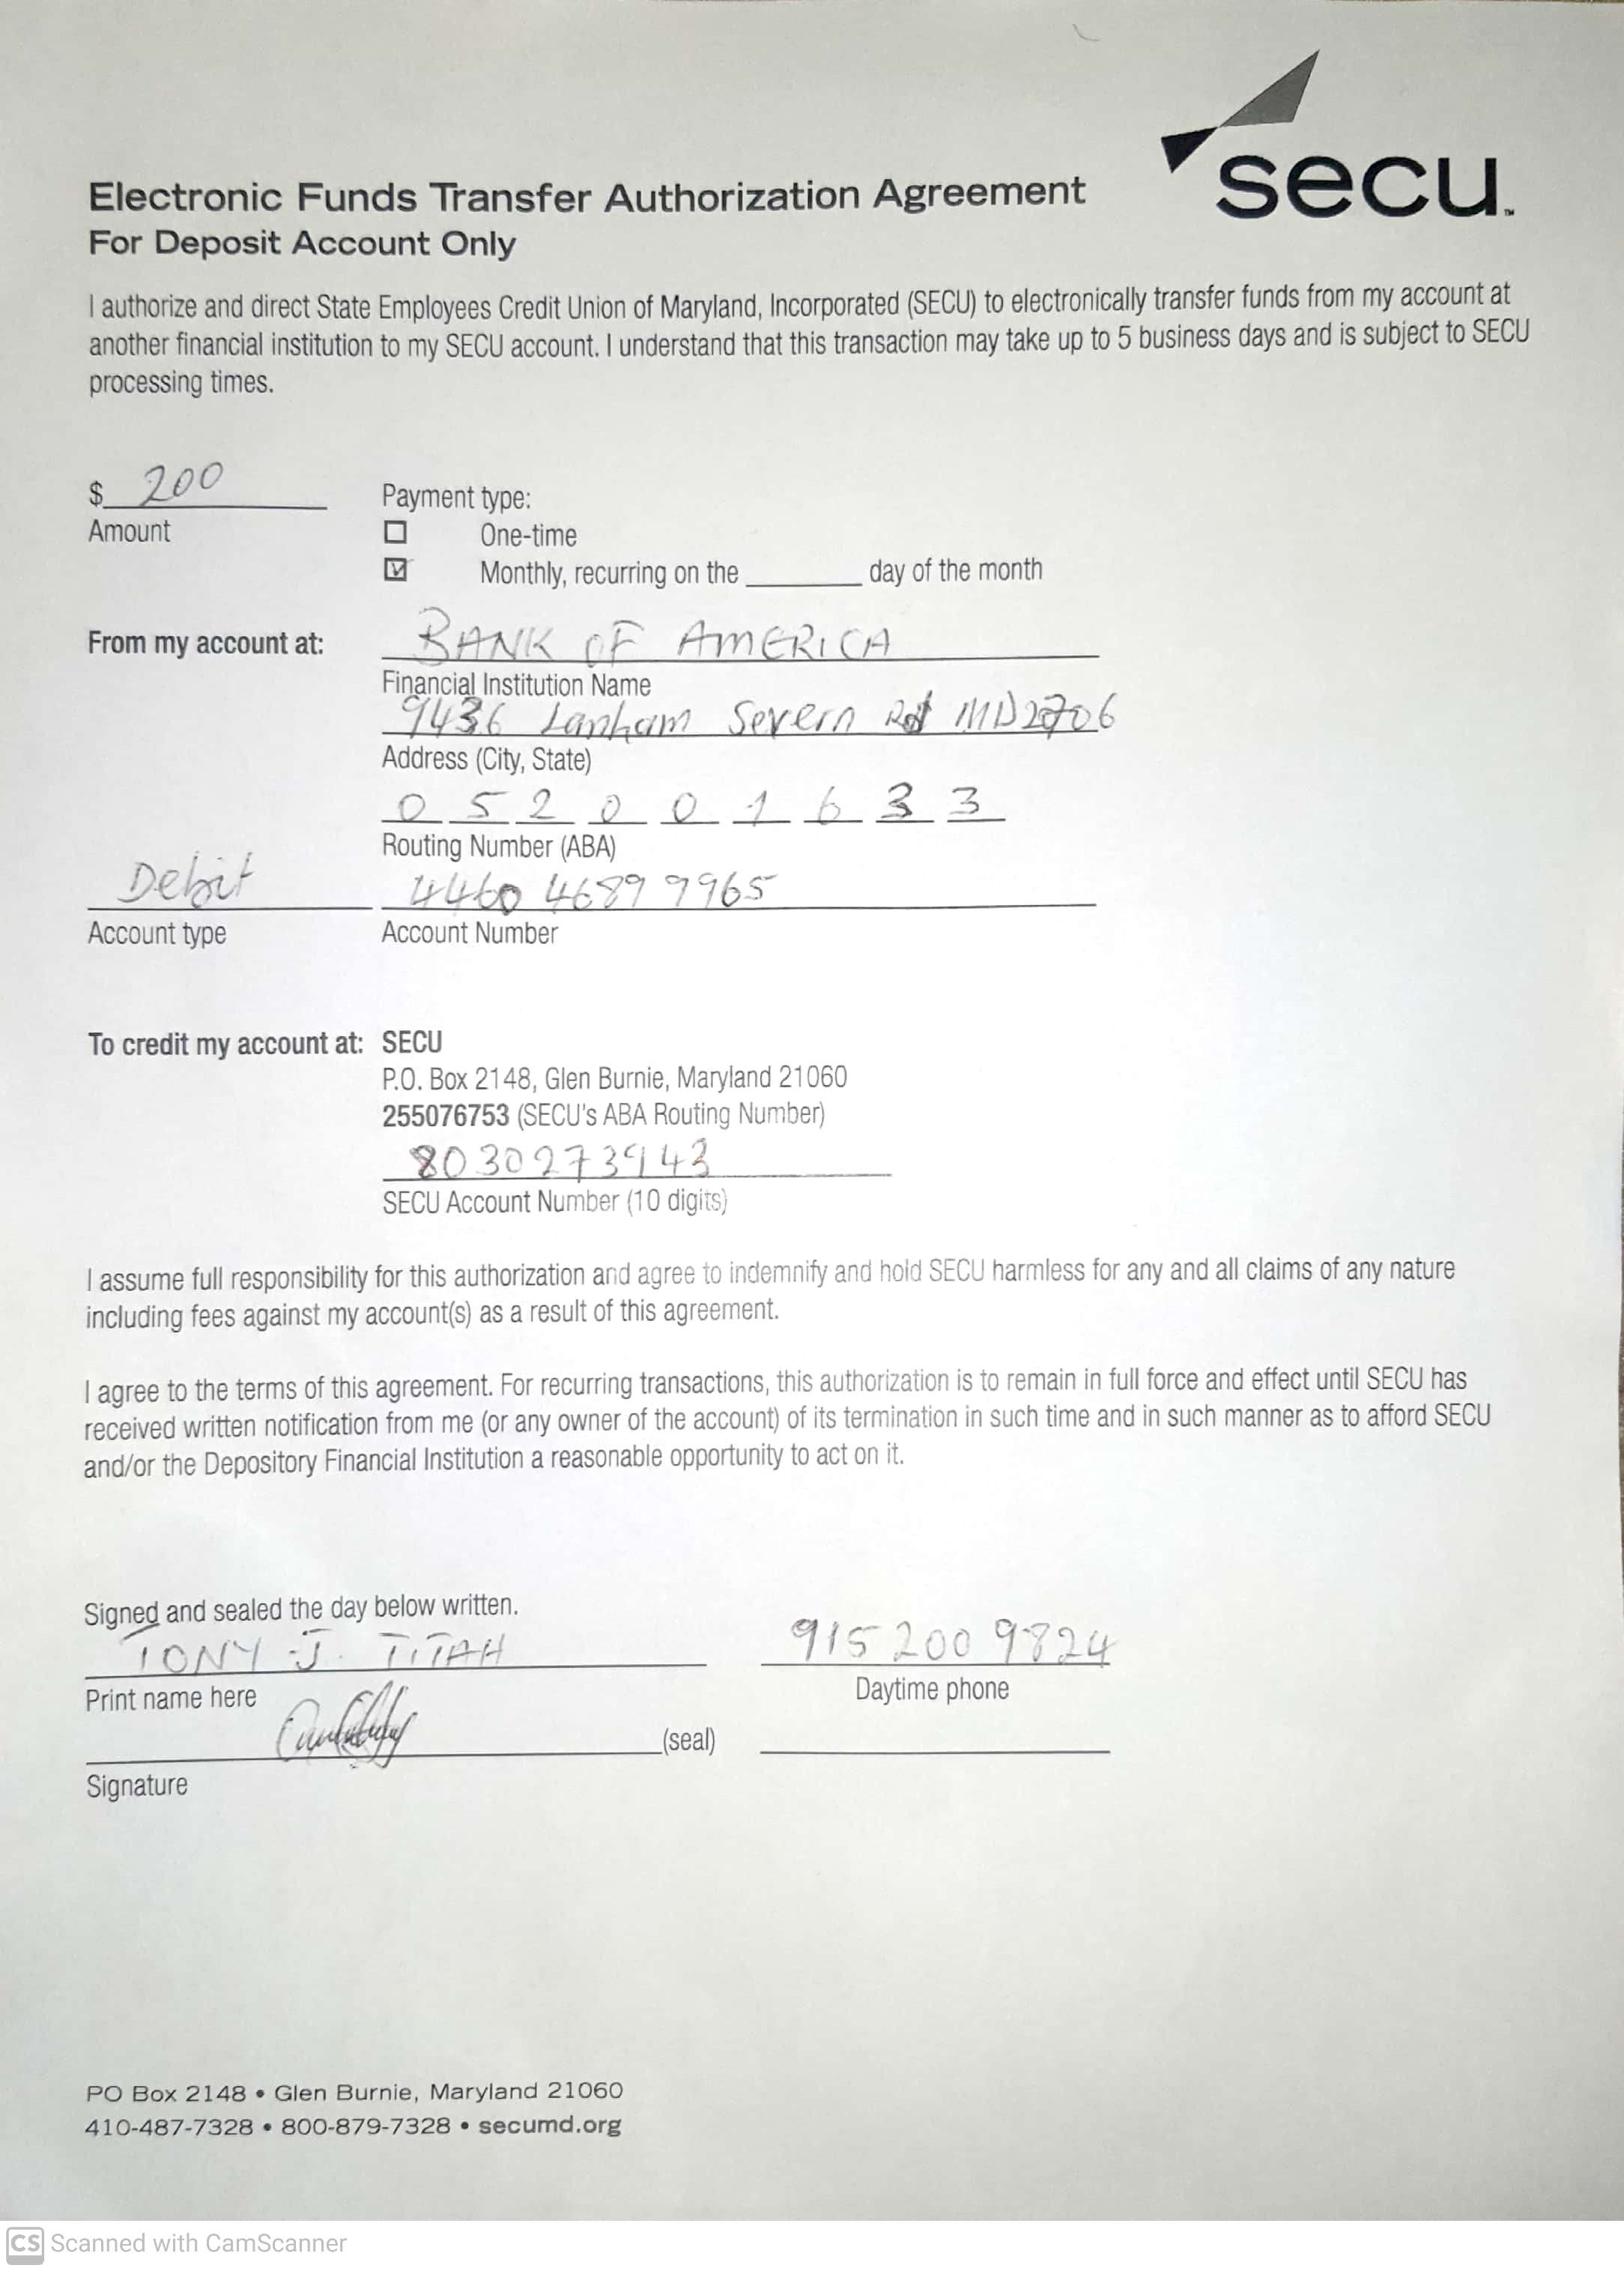 secu™
Electronic Funds Transfer Authorization Agreement
For Deposit Account Only
I authorize and direct State Employees Credit Union of Maryland, Incorporated (SECU) to electronically transfer funds from my account at
another financial institution to my SECU account. I understand that this transaction may take up to 5 business days and is subject to SECU
processing times.
$ 200
Amount
Payment type:
☐ One-time
☑ Monthly, recurring on the ______ day of the month
From my account at: BANK OF AMERICA
Financial Institution Name
9436 Lanham Severn Rd MD 20706
Address (City, State)
0 5 2 0 0 1 6 3 3
Routing Number (ABA)
Debit 4460 4689 9965
Account type Account Number
To credit my account at: SECU
P.O. Box 2148, Glen Burnie, Maryland 21060
255076753 (SECU's ABA Routing Number)
8030273943
SECU Account Number (10 digits)
I assume full responsibility for this authorization and agree to indemnify and hold SECU harmless for any and all claims of any nature
including fees against my account(s) as a result of this agreement.
I agree to the terms of this agreement. For recurring transactions, this authorization is to remain in full force and effect until SECU has
received written notification from me (or any owner of the account) of its termination in such time and in such manner as to afford SECU
and/or the Depository Financial Institution a reasonable opportunity to act on it.
Signed and sealed the day below written.
TONY J. TITAH 915 200 9824
Print name here Daytime phone
(seal)
Signature
PO Box 2148 • Glen Burnie, Maryland 21060
410-487-7328 • 800-879-7328 • secumd.org
CS Scanned with CamScanner